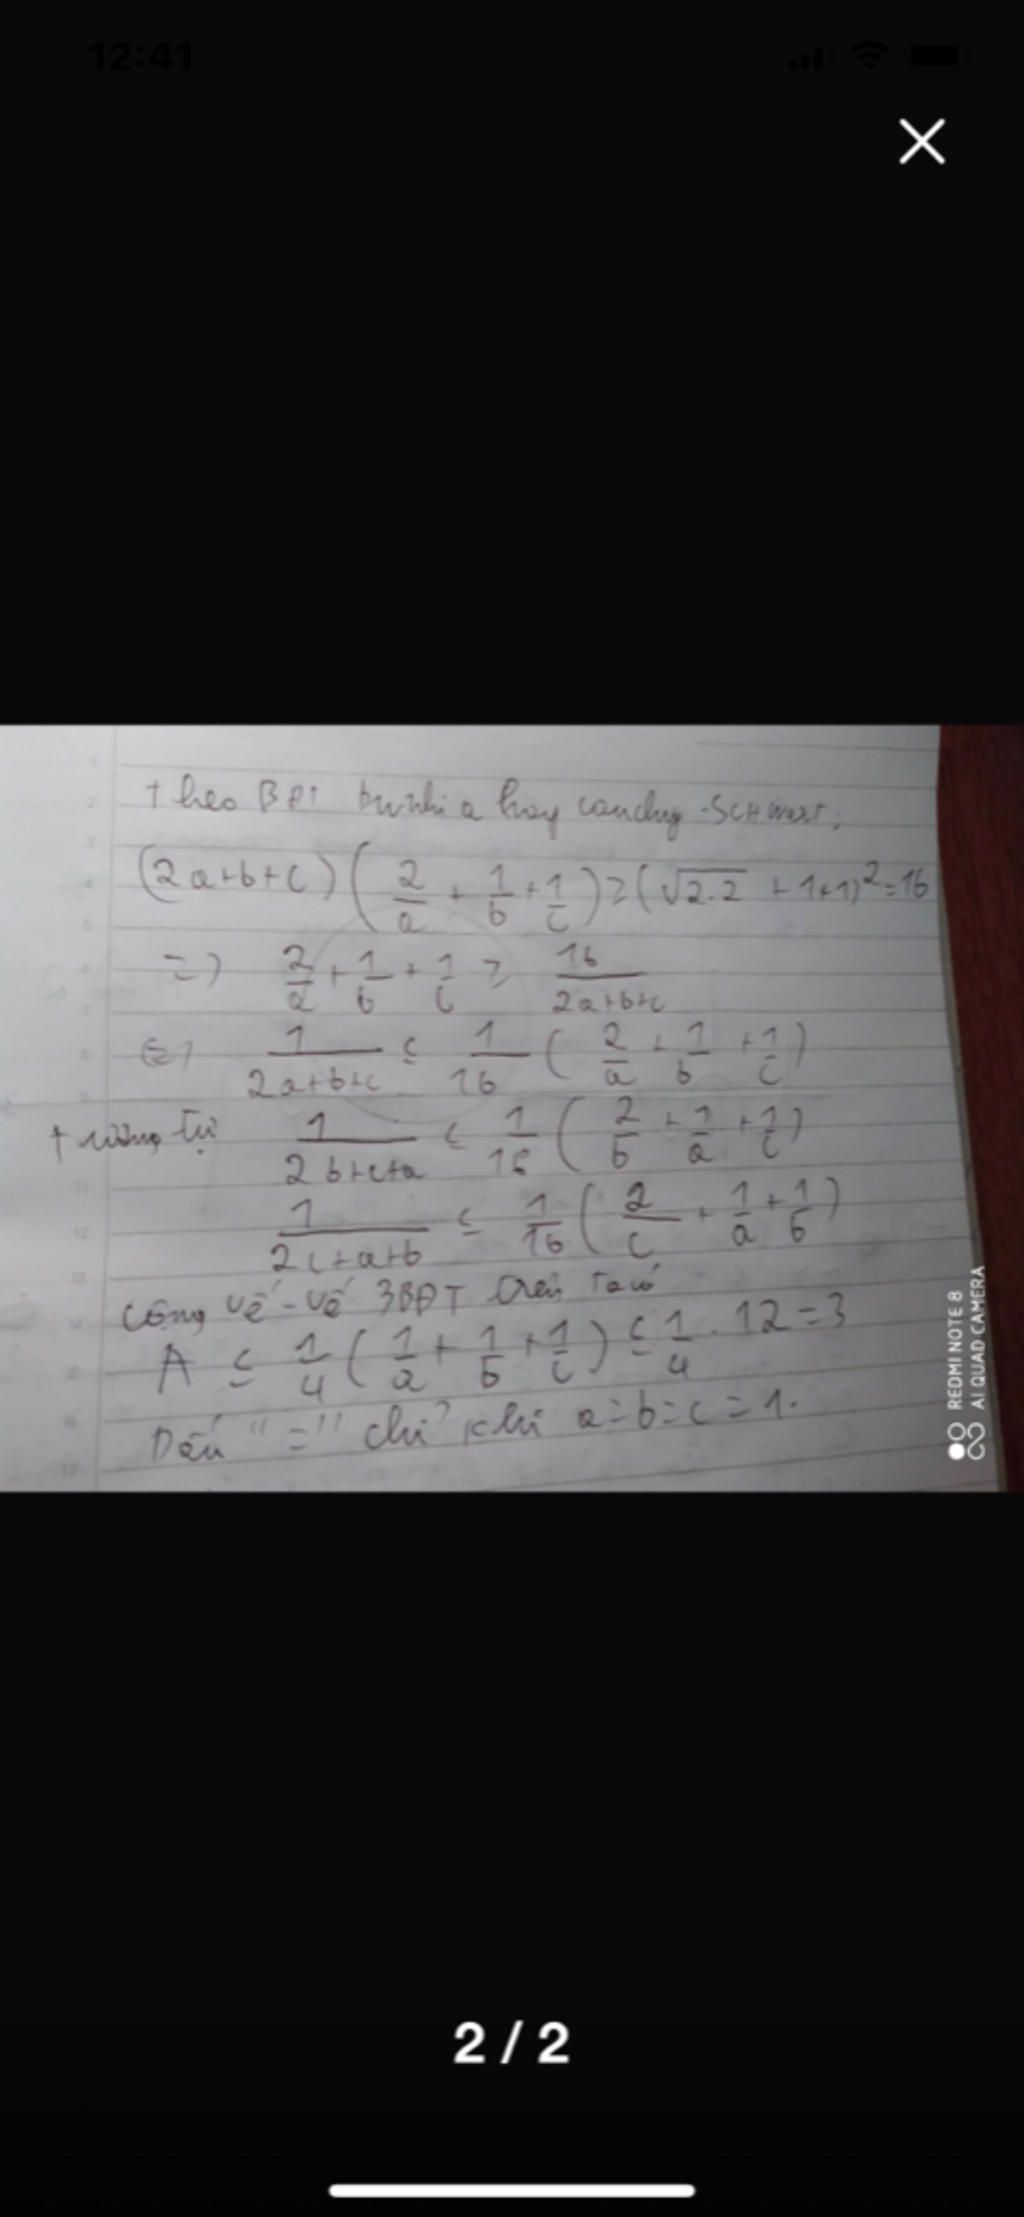 12:41
theo BĐT bunhia hay cauchy-SCHwart.
(2a+b+c)(2/a + 1/b + 1/c) ≥ (√2.2 + 1+1)² = 16
=> 2/a + 1/b + 1/c ≥ 16/(2a+b+c)
<=> 1/(2a+b+c) ≤ 1/16 (2/a + 1/b + 1/c)
tương tự 1/(2b+c+a) ≤ 1/16 (2/b + 1/a + 1/c)
1/(2c+a+b) ≤ 1/16 (2/c + 1/a + 1/b)
Cộng vế-vế 3BĐT trên ta có
A ≤ 1/4 (1/a + 1/b + 1/c) ≤ 1/4 . 12 = 3
Dấu "=" chỉ khi a=b=c=1.
REDMI NOTE 8
AI QUAD CAMERA
2 / 2